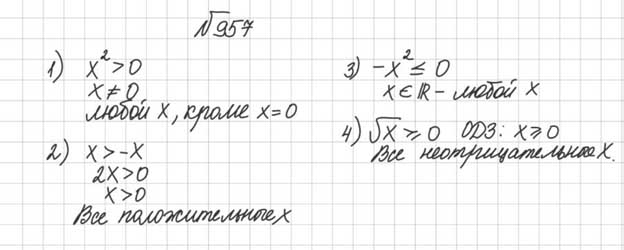 №957
1) x² > 0
x ≠ 0
любой x, кроме x = 0
2) x > -x
2x > 0
x > 0
Все положительные x
3) -x² ≤ 0
x ∈ ℝ - любой x
4) √x ⩾ 0 ОДЗ: x ⩾ 0
Все неотрицательные x.